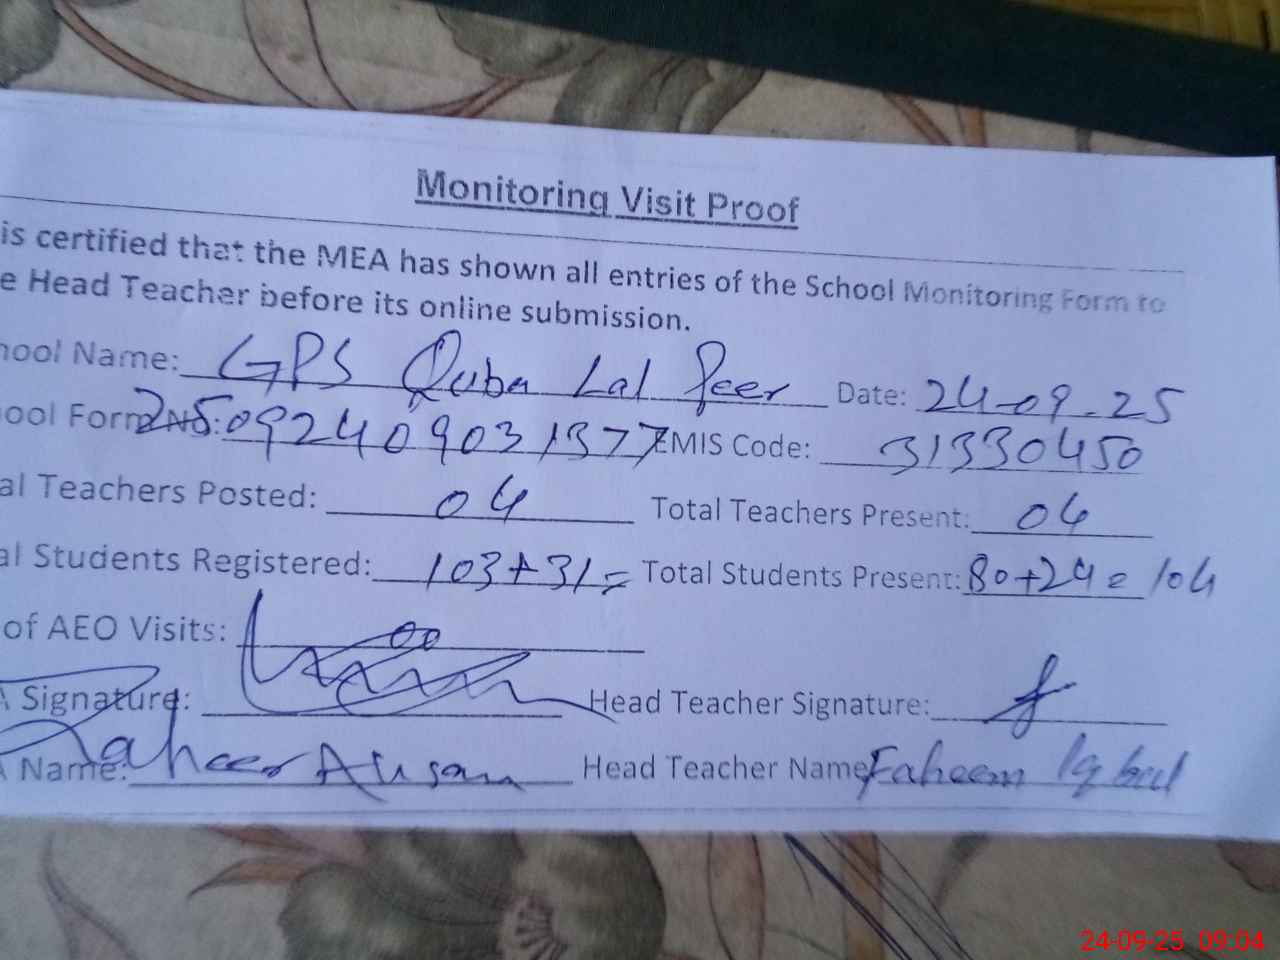 Monitoring Visit Proof
is certified that the MEA has shown all entries of the School Monitoring Form to
e Head Teacher before its online submission.
hool Name: GPS Quba Lal Peer Date: 24-09-25
ool Form No: 25092409031377 EMIS Code: 31330450
al Teachers Posted: 04 Total Teachers Present: 04
al Students Registered: 103+31= Total Students Present: 80+24=104
of AEO Visits: 00
A Signature: Head Teacher Signature:
Name: Head Teacher Name Faheem Iqbal
24-09-25 09:04